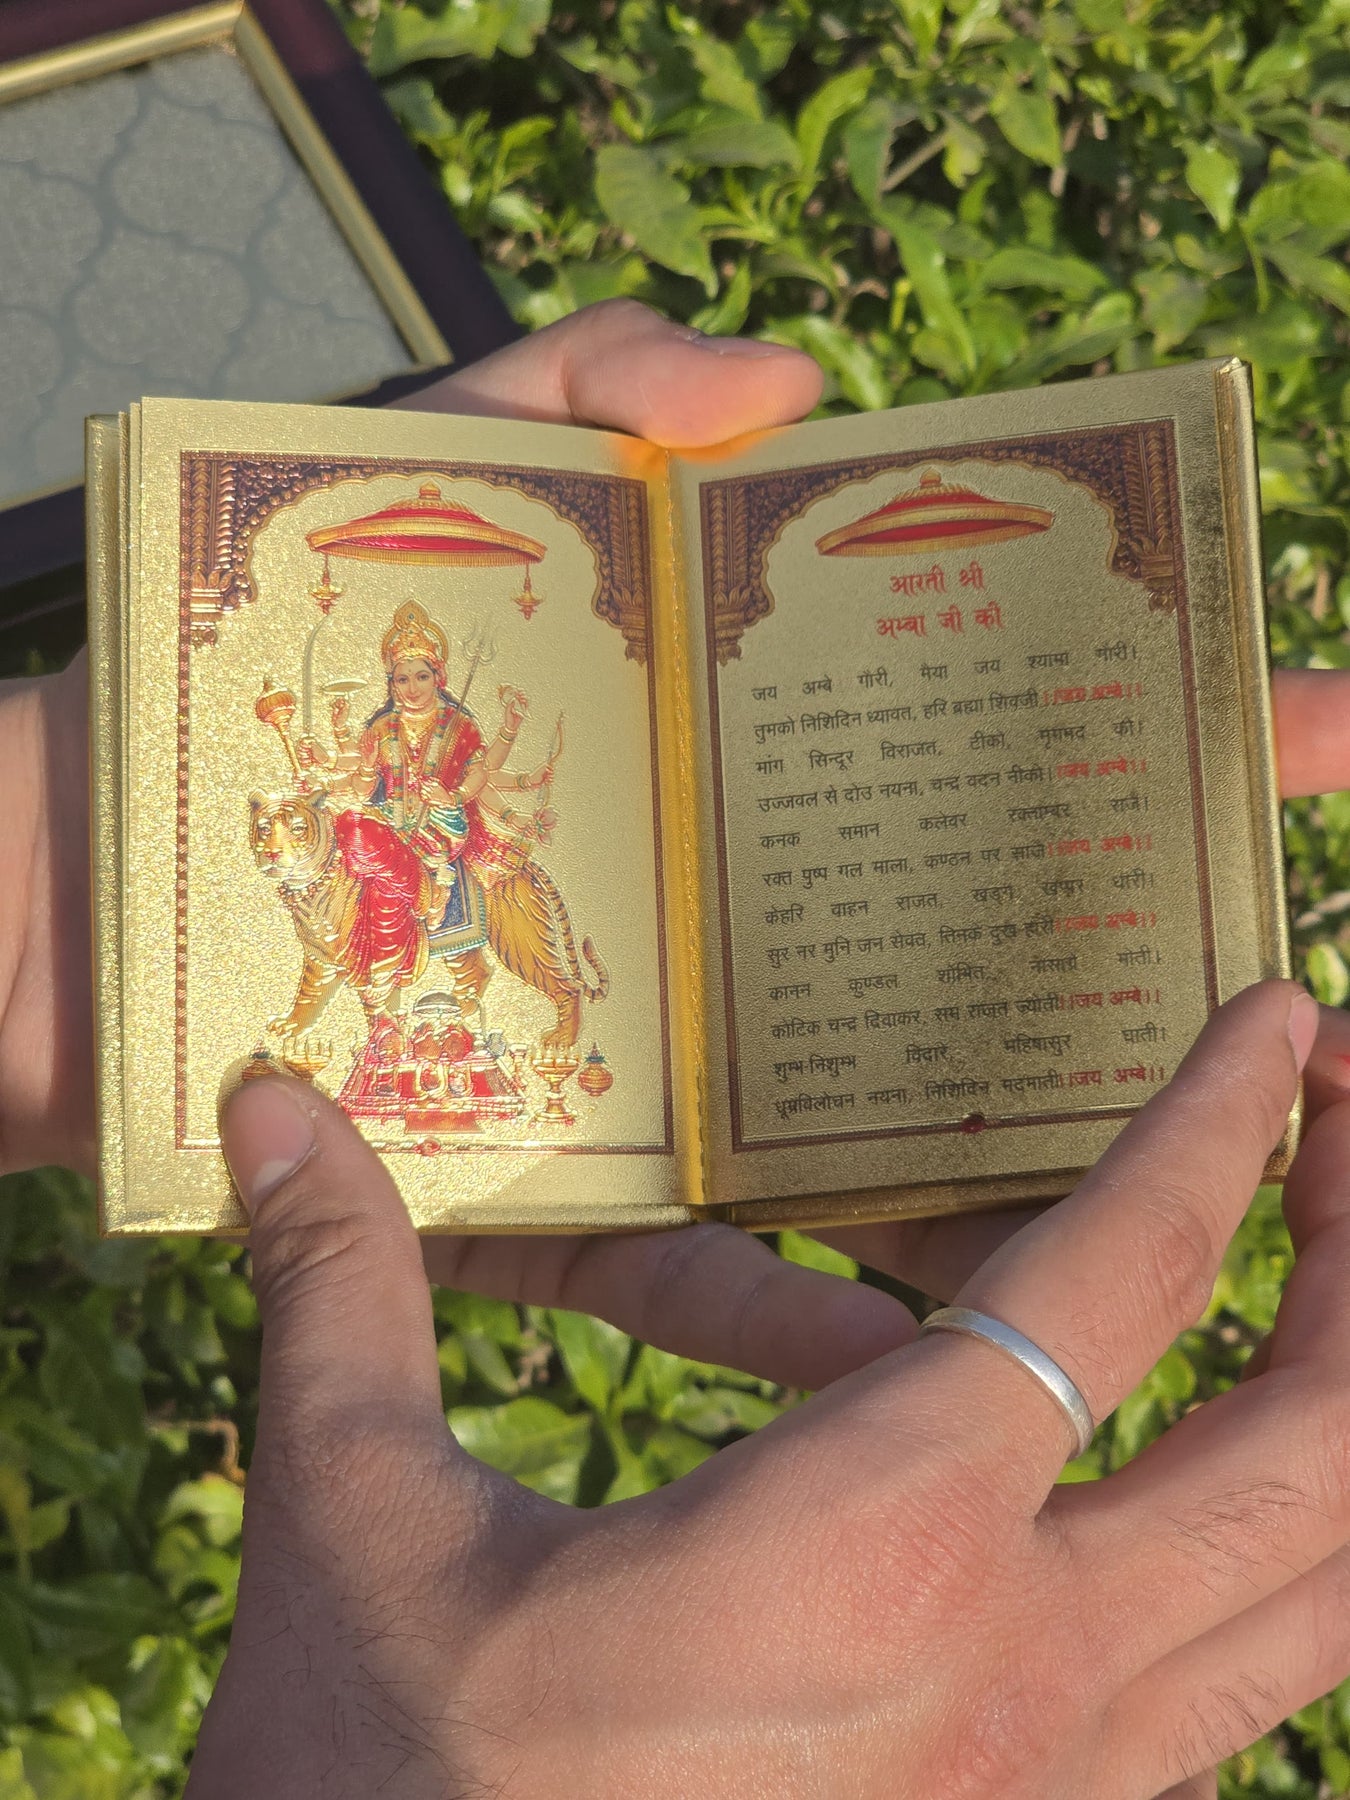 आरती श्री
अम्बा जी की
जय अम्बे गौरी, मैया जय श्यामा गौरी।
तुमको निशिदिन ध्यावत, हरि ब्रह्मा शिवजी।।जय अम्बे।।
मांग सिन्दूर विराजत, टीको, मृगमद की।
उज्जवल से दोउ नयना, चन्द्र वदन नीको।।जय अम्बे।।
कनक समान कलेवर रक्ताम्बर राजै।
रक्त पुष्प गल माला, कण्ठन पर साजै।।जय अम्बे।।
केहरि वाहन राजत, खड्ग खप्पर धारी।
सुर नर मुनि जन सेवत, तिनके दुख हारी।।जय अम्बे।।
कानन कुण्डल शोभित, नासाग्रे मोती।
कोटिक चन्द्र दिवाकर, सम राजत ज्योती।।जय अम्बे।।
शुम्भ निशुम्भ विदारे, महिषासुर घाती।
धूम्रविलोचन नयना, निशिदिन मदमाती।।जय अम्बे।।